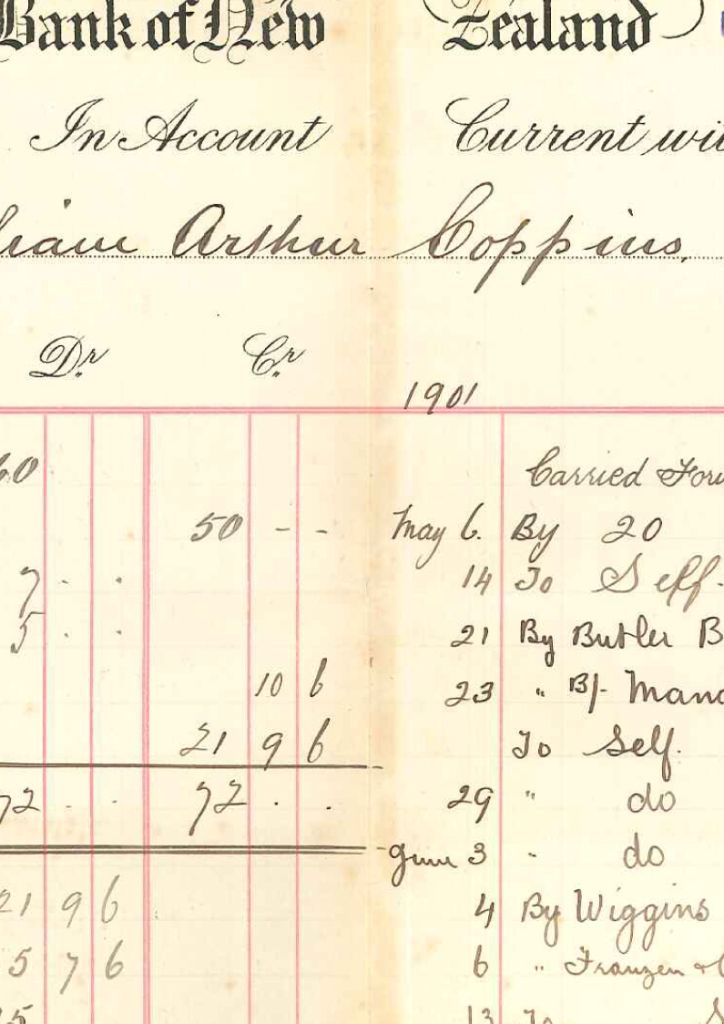 Bank of New Zealand
In Account Current
Arthur Coppins,
Dr Cr
1901
60 Carried
50 - - May 6. By 20
7 . . 14 To Self
5 . . 21 By Butler B
10 6 23 " B/-
21 9 6 To Self.
72 . . 72 . . 29 " do
June 3 " do
21 9 6 4 By Wiggins
5 7 6 6 " Franzen &
13 To S